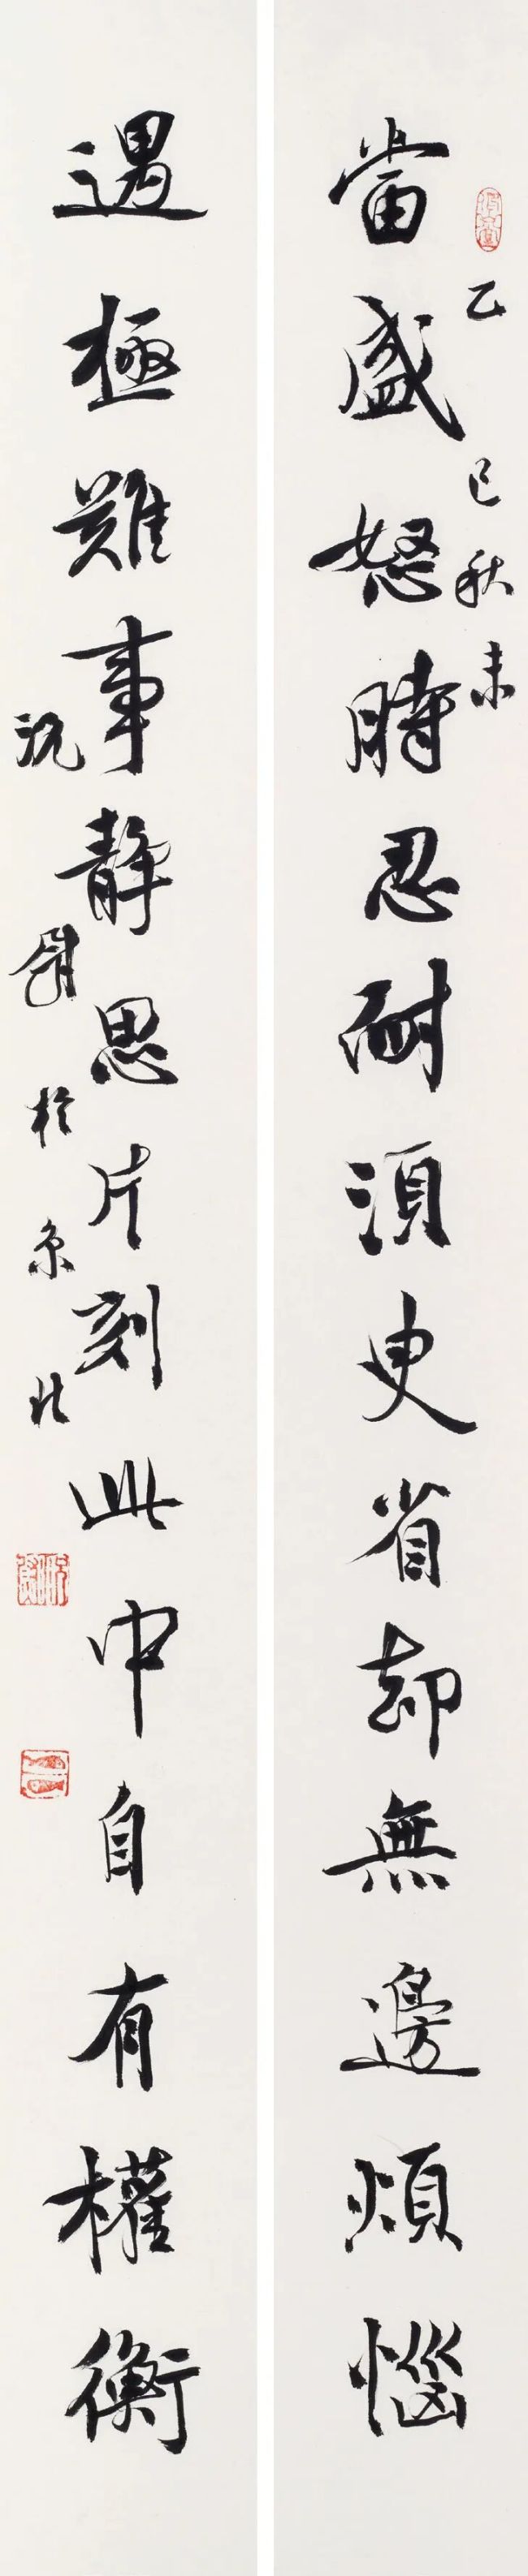 乙巳秋末
當盛怒時忍耐須臾省却無邊煩惱
遇極難事靜思片刻此中自有權衡
於京北